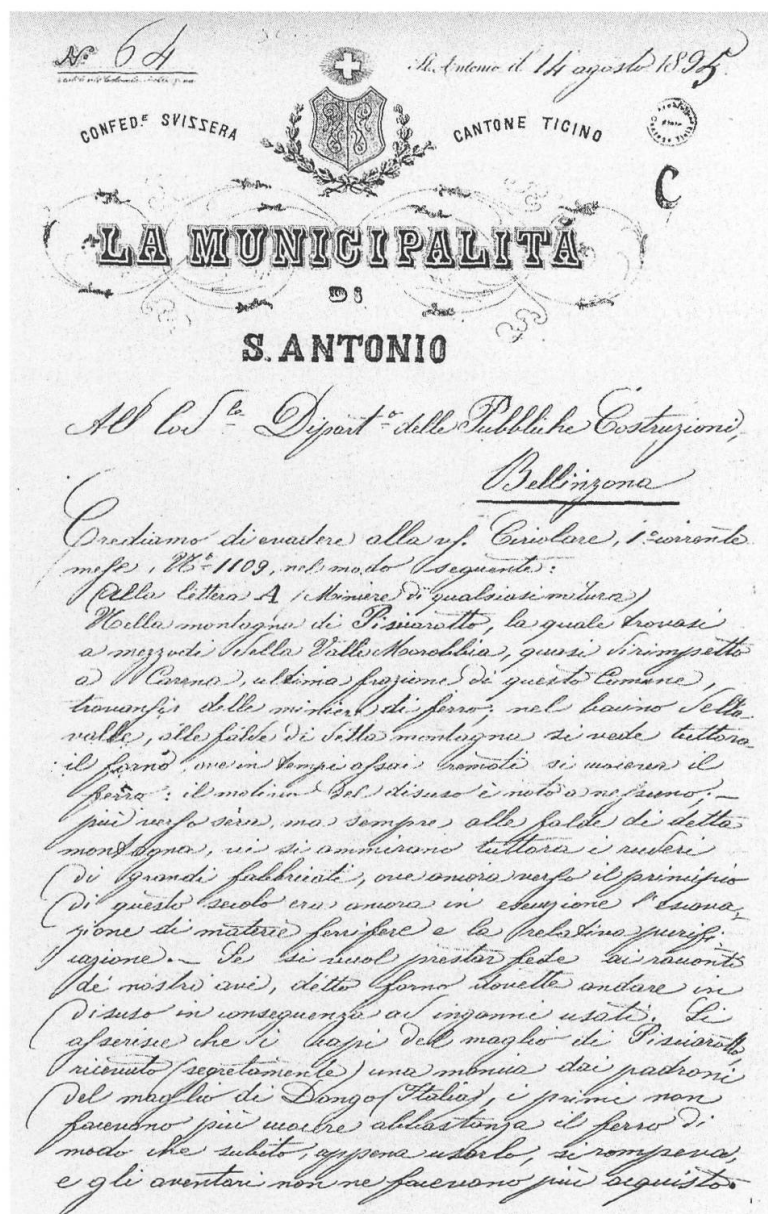 No. 64
St. Antonio il 14 agosto 1895.
CONFED.e SVIZZERA
CANTONE TICINO
C
LA MUNICIPALITÀ
DI
S. ANTONIO
All Lod.le Dipart.o delle Pubbliche Costruzioni,
Bellinzona
Crediamo di evadere alla vs. Circolare, 1o corrente
mese, No 1109, nel modo seguente:
(Alla lettera A (Miniere di qualsiasi natura)
Nella montagna di Pisciarotto, la quale trovasi
a mezzodì della Valle Morobbia, quasi dirimpetto
a Carena, ultima frazione di questo Comune,
trovansi delle miniere di ferro; nel bacino della
valle, alle falde di detta montagna si vede tuttora
il forno, ove in tempi assai remoti si cuoceva il
ferro: il motivo del disuso è noto a nessuno; —
più verso sera, ma sempre alle falde di detta
montagna, vi si ammirano tuttora i ruderi
di grandi fabbricati, ove ancora verso il principio
di questo secolo era ancora in esecuzione l'escava-
zione di materie ferrifere e la relativa purifi-
cazione. — Se si vuol prestar fede ai racconti
de nostri avi, detto forno dovette andare in
disuso in conseguenza ad inganni usati. Si
asserisce che i capi del maglio di Pisciarotto,
ricevuto (segretamente) una mancia dai padroni
del maglio di Dongo (Italia), i primi non
facevano più cuocere abbastanza il ferro di
modo che subito, appena usarlo, si rompeva,
e gli aventari non ne facevano più acquisto.